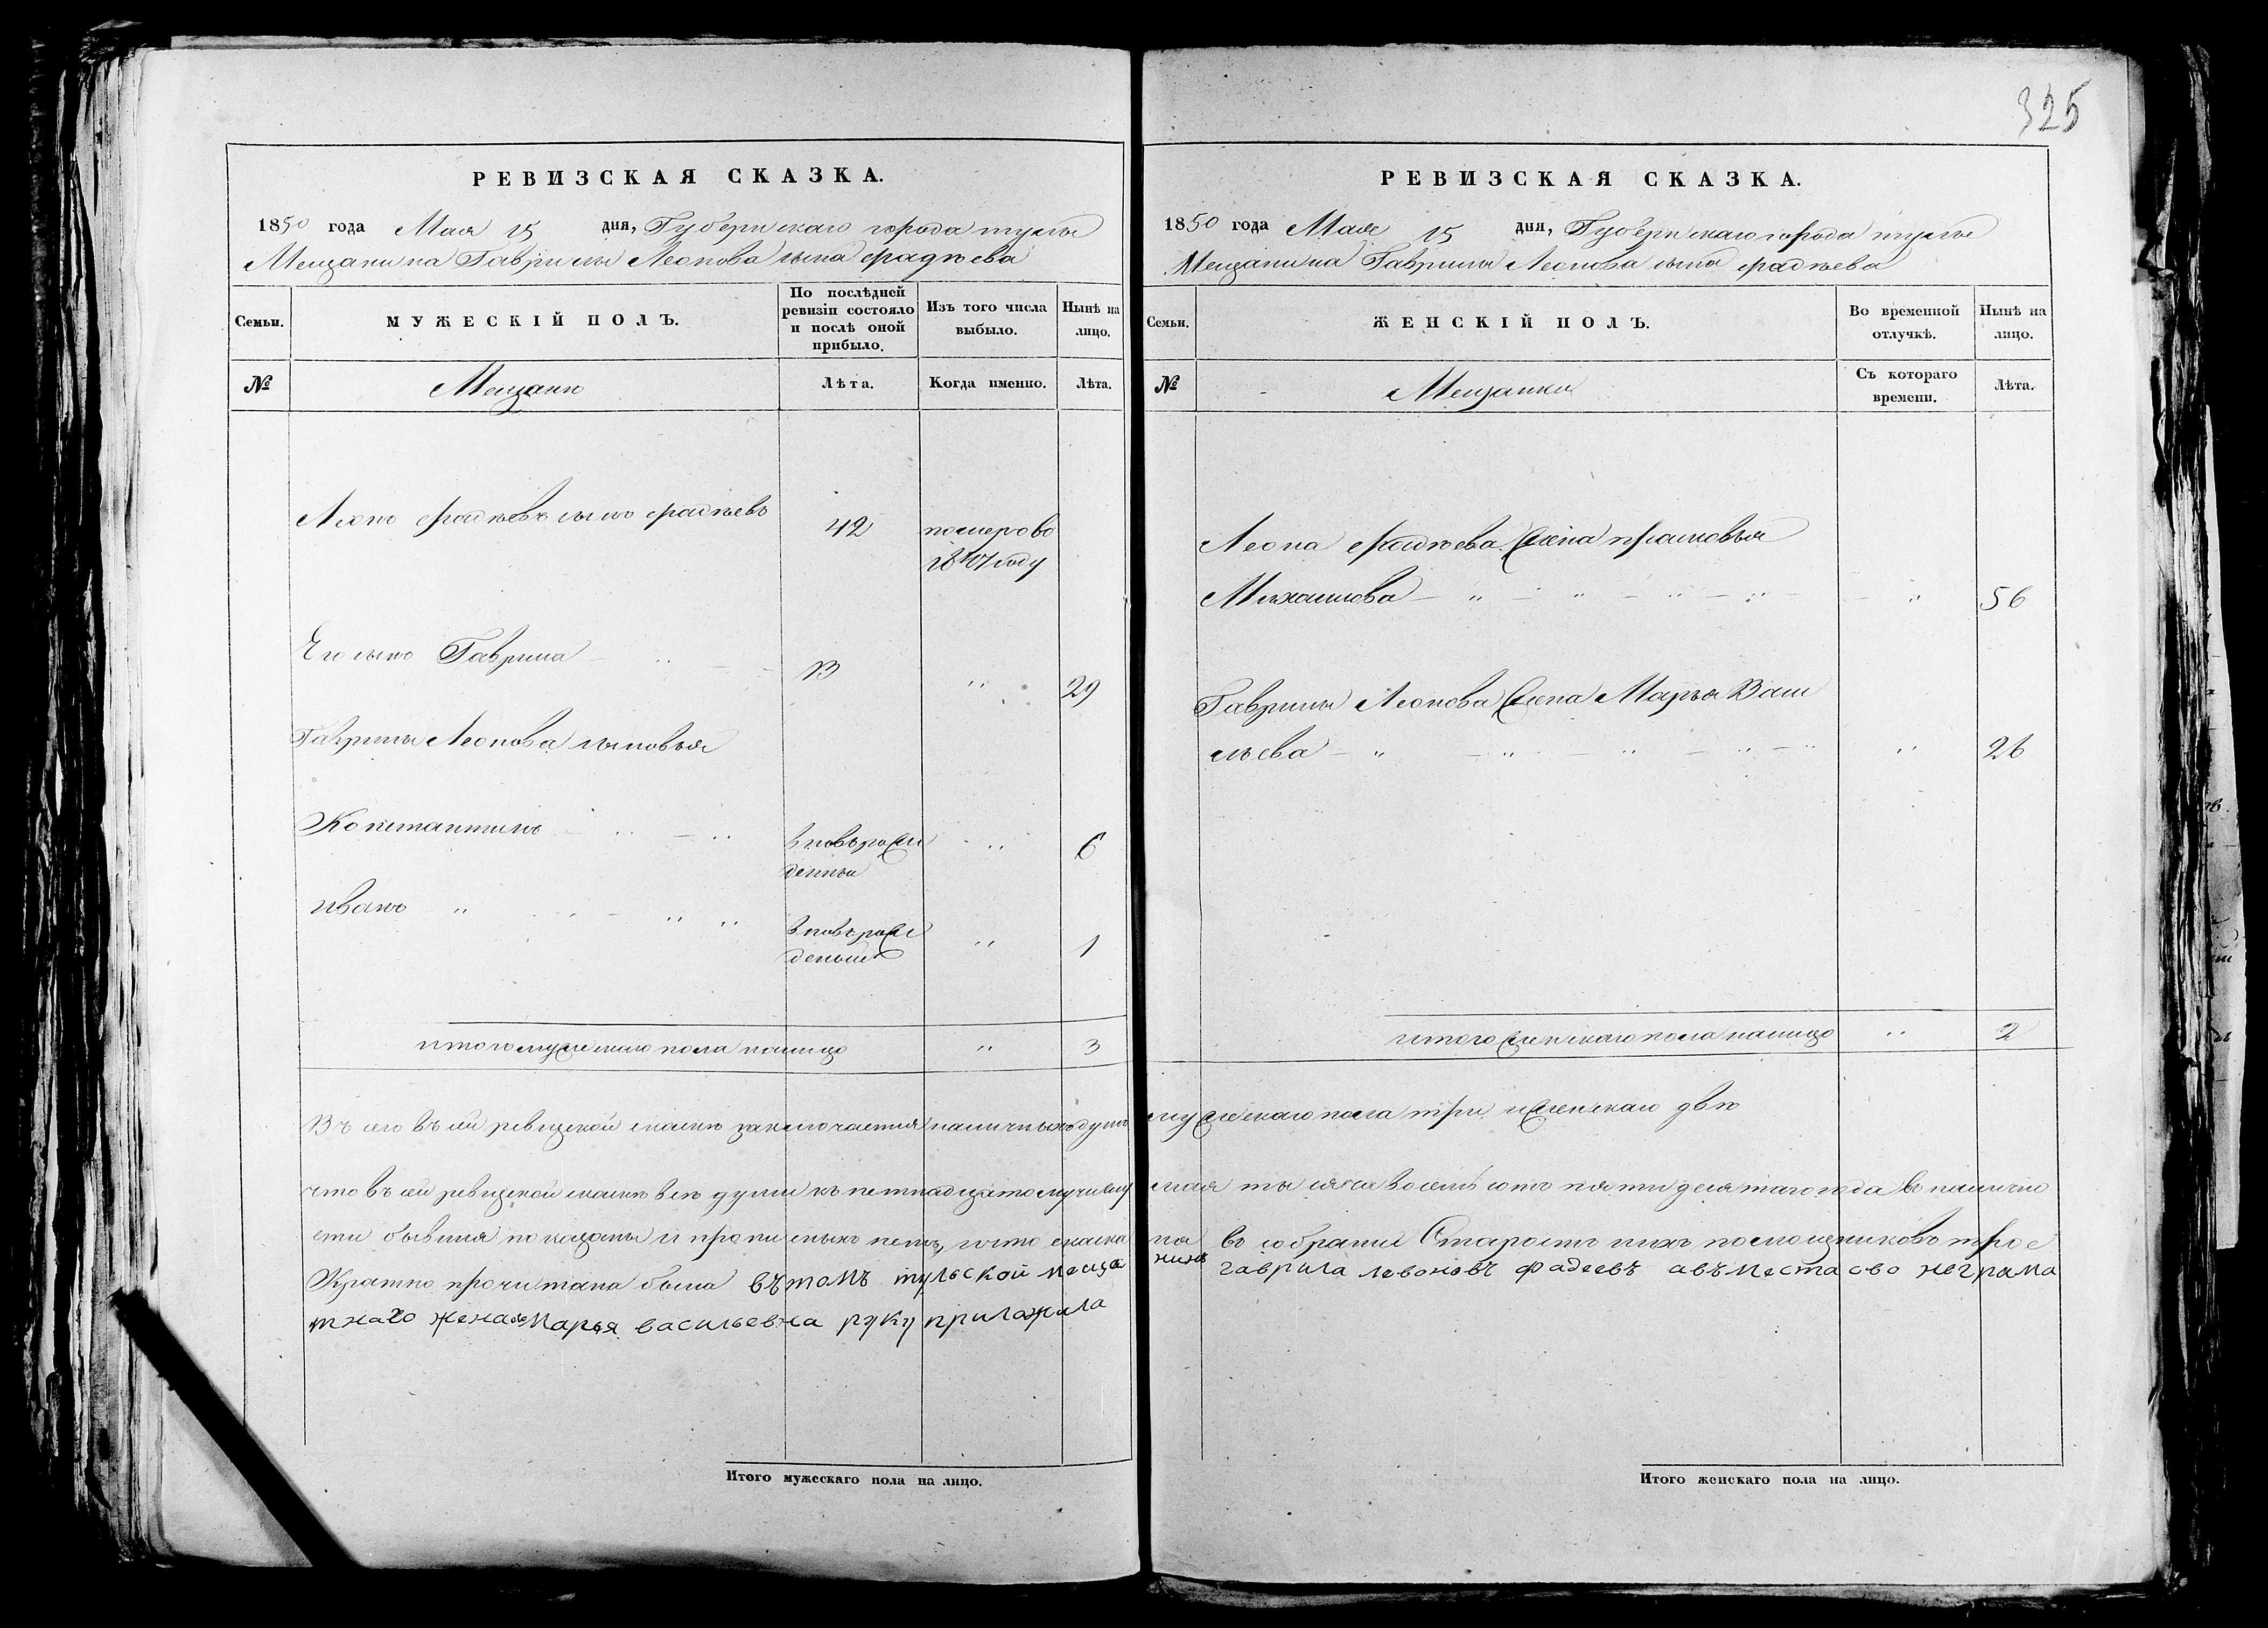 325
РЕВИЗСКАЯ СКАЗКА.
1850 года Мая 15 дня, Губернскаго города тулы
Мещанина Гаврилы Леонова сына фадѣева
Семьи.
МУЖЕСКІЙ ПОЛЪ.
По послѣдней ревизіи состояло и послѣ оной прибыло.
Изъ того числа выбыло.
Нынѣ на лицо.
№
Мещанѣ
Лѣта.
Когда именно.
Лѣта.
Леонъ фадѣевъ сынъ фадѣевъ 42 померъ въ
1847 году
Его сынъ Гаврила 13 " 29
Гаврилы Леонова сыновья
Константинъ вновърож " 6
денны
иванъ " вновърож " 1
денные
итого мужескаго пола налицо " 3
РЕВИЗСКАЯ СКАЗКА.
1850 года Мая 15 дня, Губернскаго города тулы
Мещанина Гаврилы Леонова сына фадѣева
Семьи.
ЖЕНСКІЙ ПОЛЪ.
Во временной отлучкѣ.
Нынѣ на лицо.
№
Мещанки
Съ котораго времени.
Лѣта.
Леона фадѣева жена прасковья
Михаилова " 56
Гаврилы Леонова жена Марья Васи
льева " 26
итого женскаго пола налицо " 2
Въ сего въ сей ревизской сказкѣ заключается наличныхъ душъ мужескаго пола три и женскаго двѣ
что въ сей ревизской сказкѣ всѣ души къ петнадцатому числу мая тысяча восемьсотъ пятидесятаго года въ налично
сти бывшия показаны и прописныхъ нетъ, и что сказка сия въ собрании Старостъ ихъ помощниковъ трое
Кратно прочитана была въ томъ тульской меща нинъ гаврила левоновъ фадеевъ авъместа ево неграмо
тнаго жена Марья васильевна руку приложила
Итого мужескаго пола на лицо.
Итого женскаго пола на лицо.